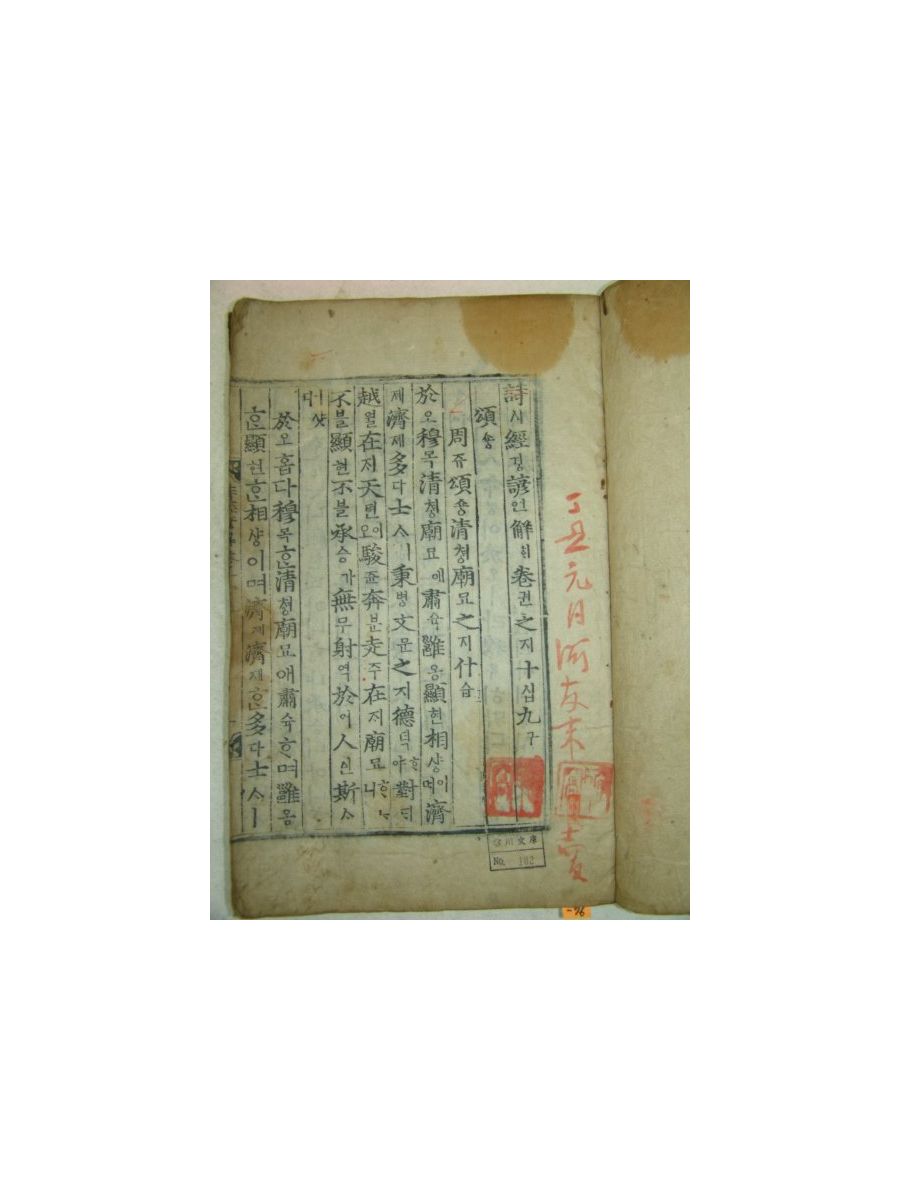 詩시經경諺언解ᄒᆡ卷권之지十십九구
頌숑
周쥬頌숑淸쳥廟묘之지什습
於오穆목淸쳥廟묘애肅슉雝옹顯현相샹이여濟
졔濟졔多다士ᄉᆞㅣ秉병文문之지德덕ᄒᆞ야對ᄃᆡ
越월在ᄌᆡ天텬이오駿쥰奔분走주在ᄌᆡ廟묘ᄒᆞᄂᆞ니
不블顯현不블承승가無무射역於어人인斯ᄉᆞ
於오홉다穆목ᄒᆞᆫ淸쳥廟묘애肅슉ᄒᆞ며雝옹
ᄒᆞᆫ顯현ᄒᆞᆫ相샹이며濟졔濟졔ᄒᆞᆫ多다士ᄉᆞㅣ
丁丑元月
文庫
No. 102
-76